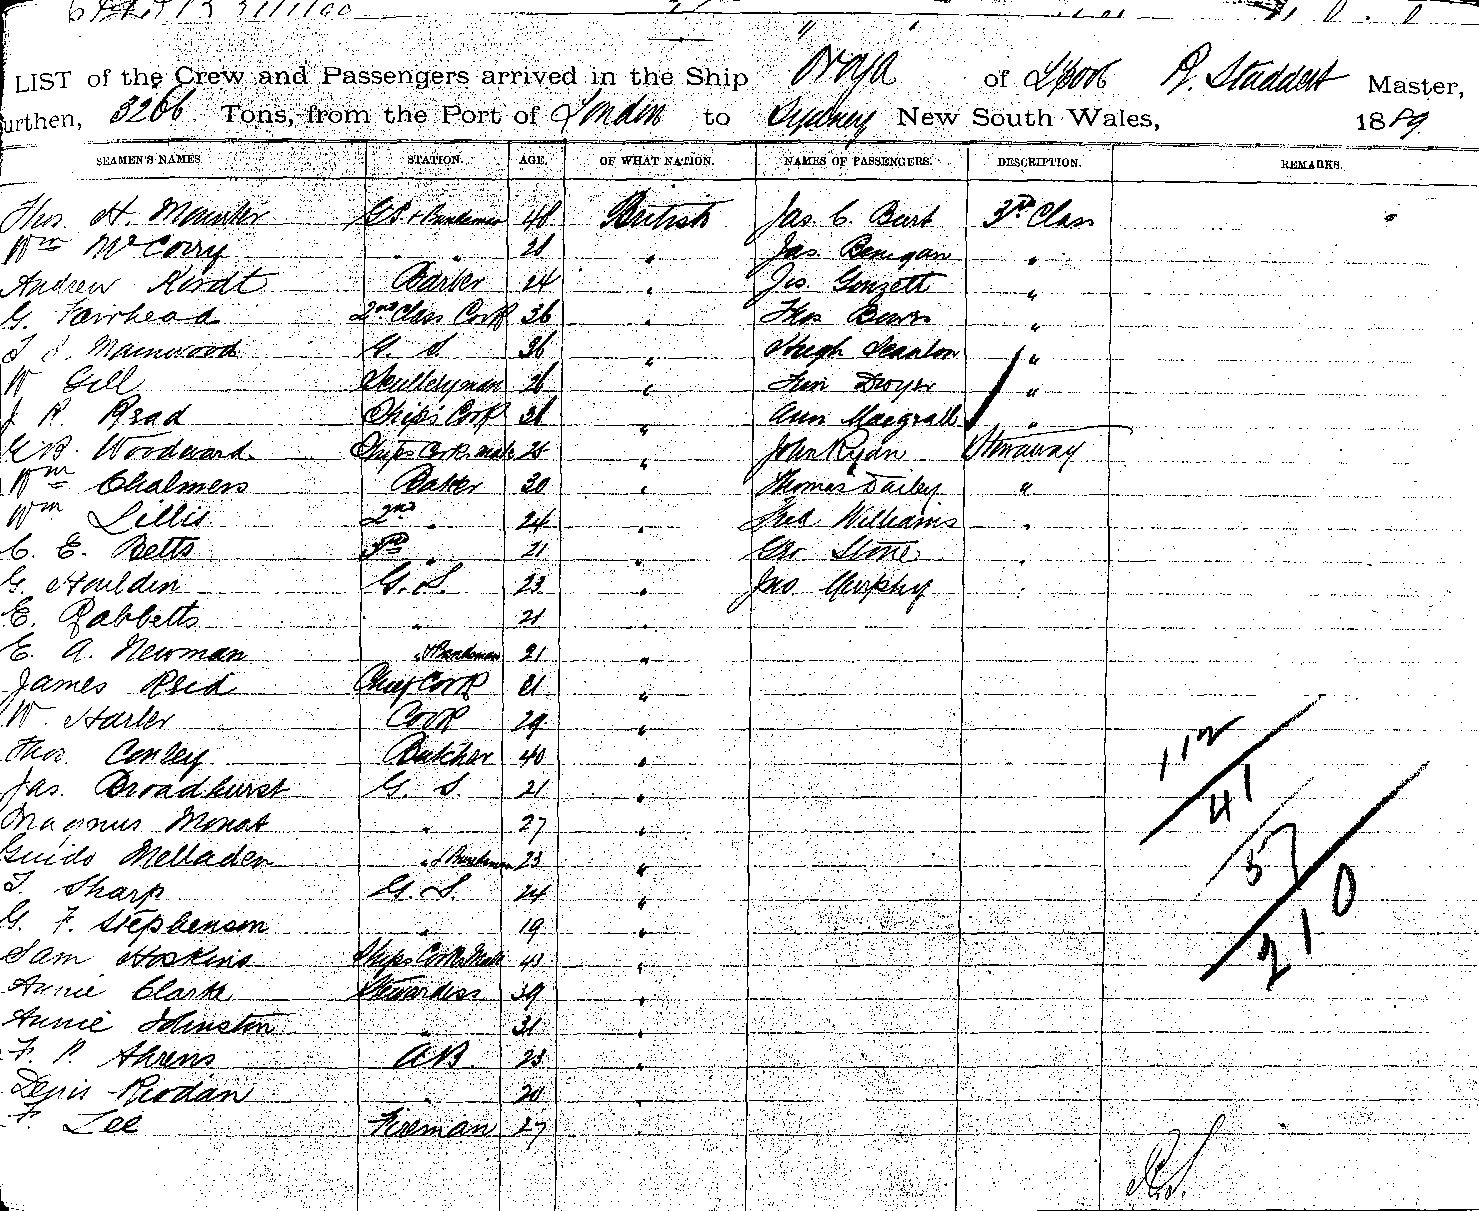 "Oroya"
LIST of the Crew and Passengers arrived in the Ship Oroya of L'pool R. Studdert Master,
urthen, 3266 Tons, from the Port of London to Sydney New South Wales, 1889
SEAMEN'S NAMES. STATION. AGE. OF WHAT NATION. NAMES OF PASSENGERS. DESCRIPTION. REMARKS.
Thos. H. 48 British Jas. C. Burt 3rd Class
Wm McCorry " " 21 " Jas. "
Andrew Barber 24 " Jas. Gonzett "
G. Fairhead 2nd Class Cook 36 " Thos "
T. S. Mainwood G. S. 36 " Hugh Scanlon "
W Gill Sculleryman 26 " Dwyer "
J. R. Read Ship's Cook 38 " Ann Macgrall "
Woodward Ships Cooks mate 25 " John Ryan Stowaway
Wm Chalmers Baker 30 " Thomas Dailey "
Wm Lillis 2nd " 24 " Fred Williams "
C. E. Betts 3rd " 21 " Geo Stone "
G. Houlden G. S. 23 " Jno Murphy "
E. Rabbetts " 21 "
E. A. Newman " 21 "
James Reid Chief Cook 31 "
W. Harler Cook 29 "
Thos. Conley Butcher 40 "
Jas. Broadhurst G. S. 21 "
Magnus Mouat " 27 "
Guido Mellader " 23 "
T. Sharp G. S. 24 "
G. F. Stephenson " 19 "
Sam Hoskins Ships Cooks Mate 43 "
Annie Clark Stewardess 39 "
Annie Johnston " 31 "
F. P. Ahrens A.B. 23 "
Denis Riordan " 20 "
F Lee Fireman 27 "
112
41
57
210